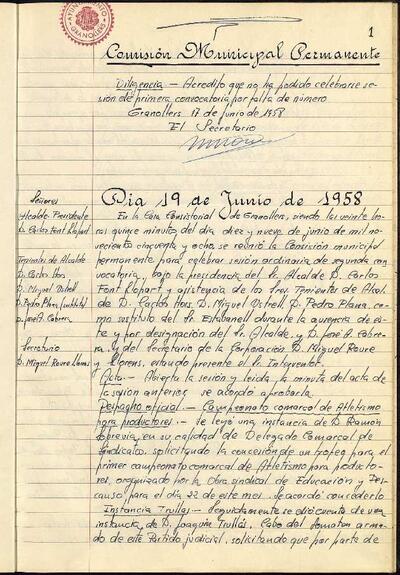 1
AYUNTAMIENTO
GRANOLLERS
Comisión Municipal Permanente
Diligencia — Acredito que no ha podido celebrarse se-
sión de primera convocatoria por falta de número
Granollers 17 de junio de 1958
El Secretario
Día 19 de Junio de 1958
Señores
Alcalde-Presidente
D. Carlos Font Llopart
Tenientes de Alcalde
D. Carlos Hors
D. Miguel Vstrell
D. Pedro Plana (substituto)
D. José A. Cabrera
Secretario
D. Miguel Roure Llorens
En la Casa Consistorial de Granollers, siendo las veinte ho-
ras quince minutos del día diez y nueve de junio de mil no-
vecientos cincuenta y ocho, se reunió la Comisión municipal
permanente para celebrar sesión ordinaria de segunda con-
vocatoria, bajo la presidencia del Sr. Alcalde D. Carlos
Font Llopart y asistencia de los Sres. Tenientes de Alcal-
de D. Carlos Hors, D. Miguel Vstrell, D. Pedro Plana, co-
mo sustituto del Sr. Estabanell durante la ausencia de és-
te y por designación del Sr. Alcalde, y D. José A. Cabre-
ra, y del Secretario de la Corporación D. Miguel Roure
y Llorens, estando presente el Sr. Interventor.
Acta.- Abierta la sesión y leída la minuta del acta de
la sesión anterior, se acordó aprobarla.
Despacho oficial.- Campeonato comarcal de Atletismo
para productores.- Se leyó una instancia de D. Ramón
en su calidad de Delegado Comarcal de
Sindicatos, solicitando la concesión de un trofeo para el
primer campeonato comarcal de Atletismo para producto-
res, organizado por la Obra sindical de Educación y Des-
canso, para el día 22 de este mes. Se acordó concederlo
Instancia Trullás.- Seguidamente se dió cuenta de una
instancia de D. Joaquín Trullás, Cabo del Somatén arma-
do de este Partido judicial, solicitando que por parte de